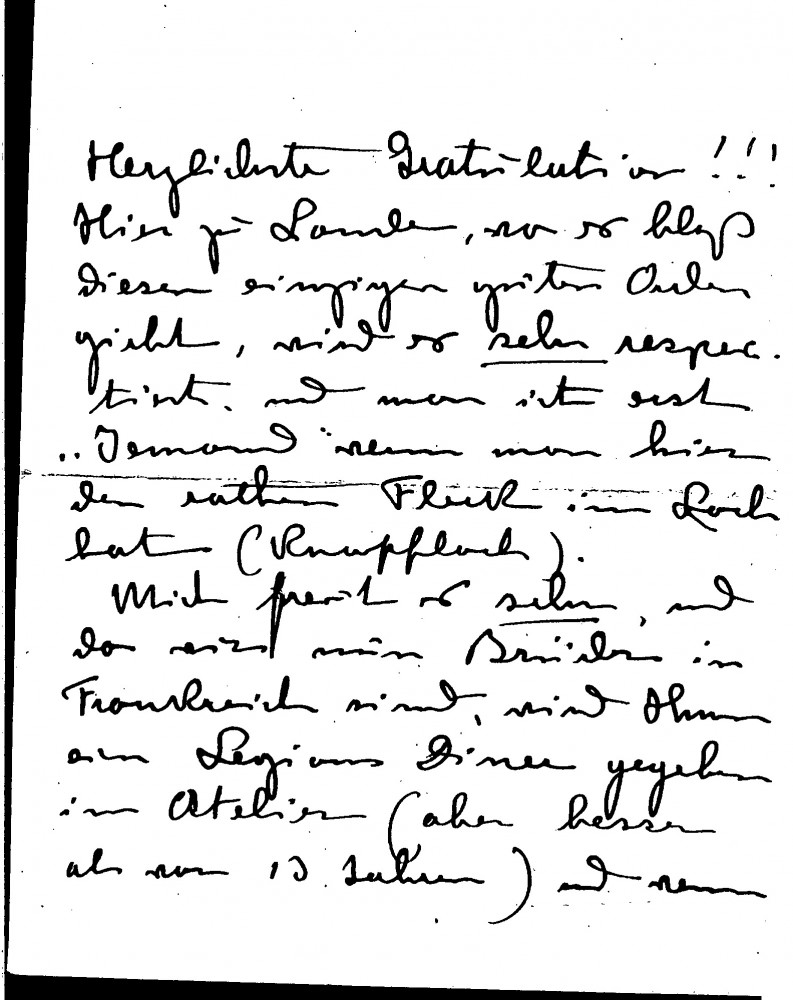 Herzlichste Gratulation!!!
Hier zu Lande, wo es blos
diesen einzigen guten Orden
giebt, wird er sehr respec-
tirt. und man ist erst
"Jemand" wenn man hier
den rothen Fleck im Loch
hat (Knopfloch).
Mich freut es sehr, und
da wir nun Brüder in
Frankreich sind, wird Ihnen
ein Legions Diner gegeben
im Atelier (aber besser
als vor 13 Jahren) und wenn